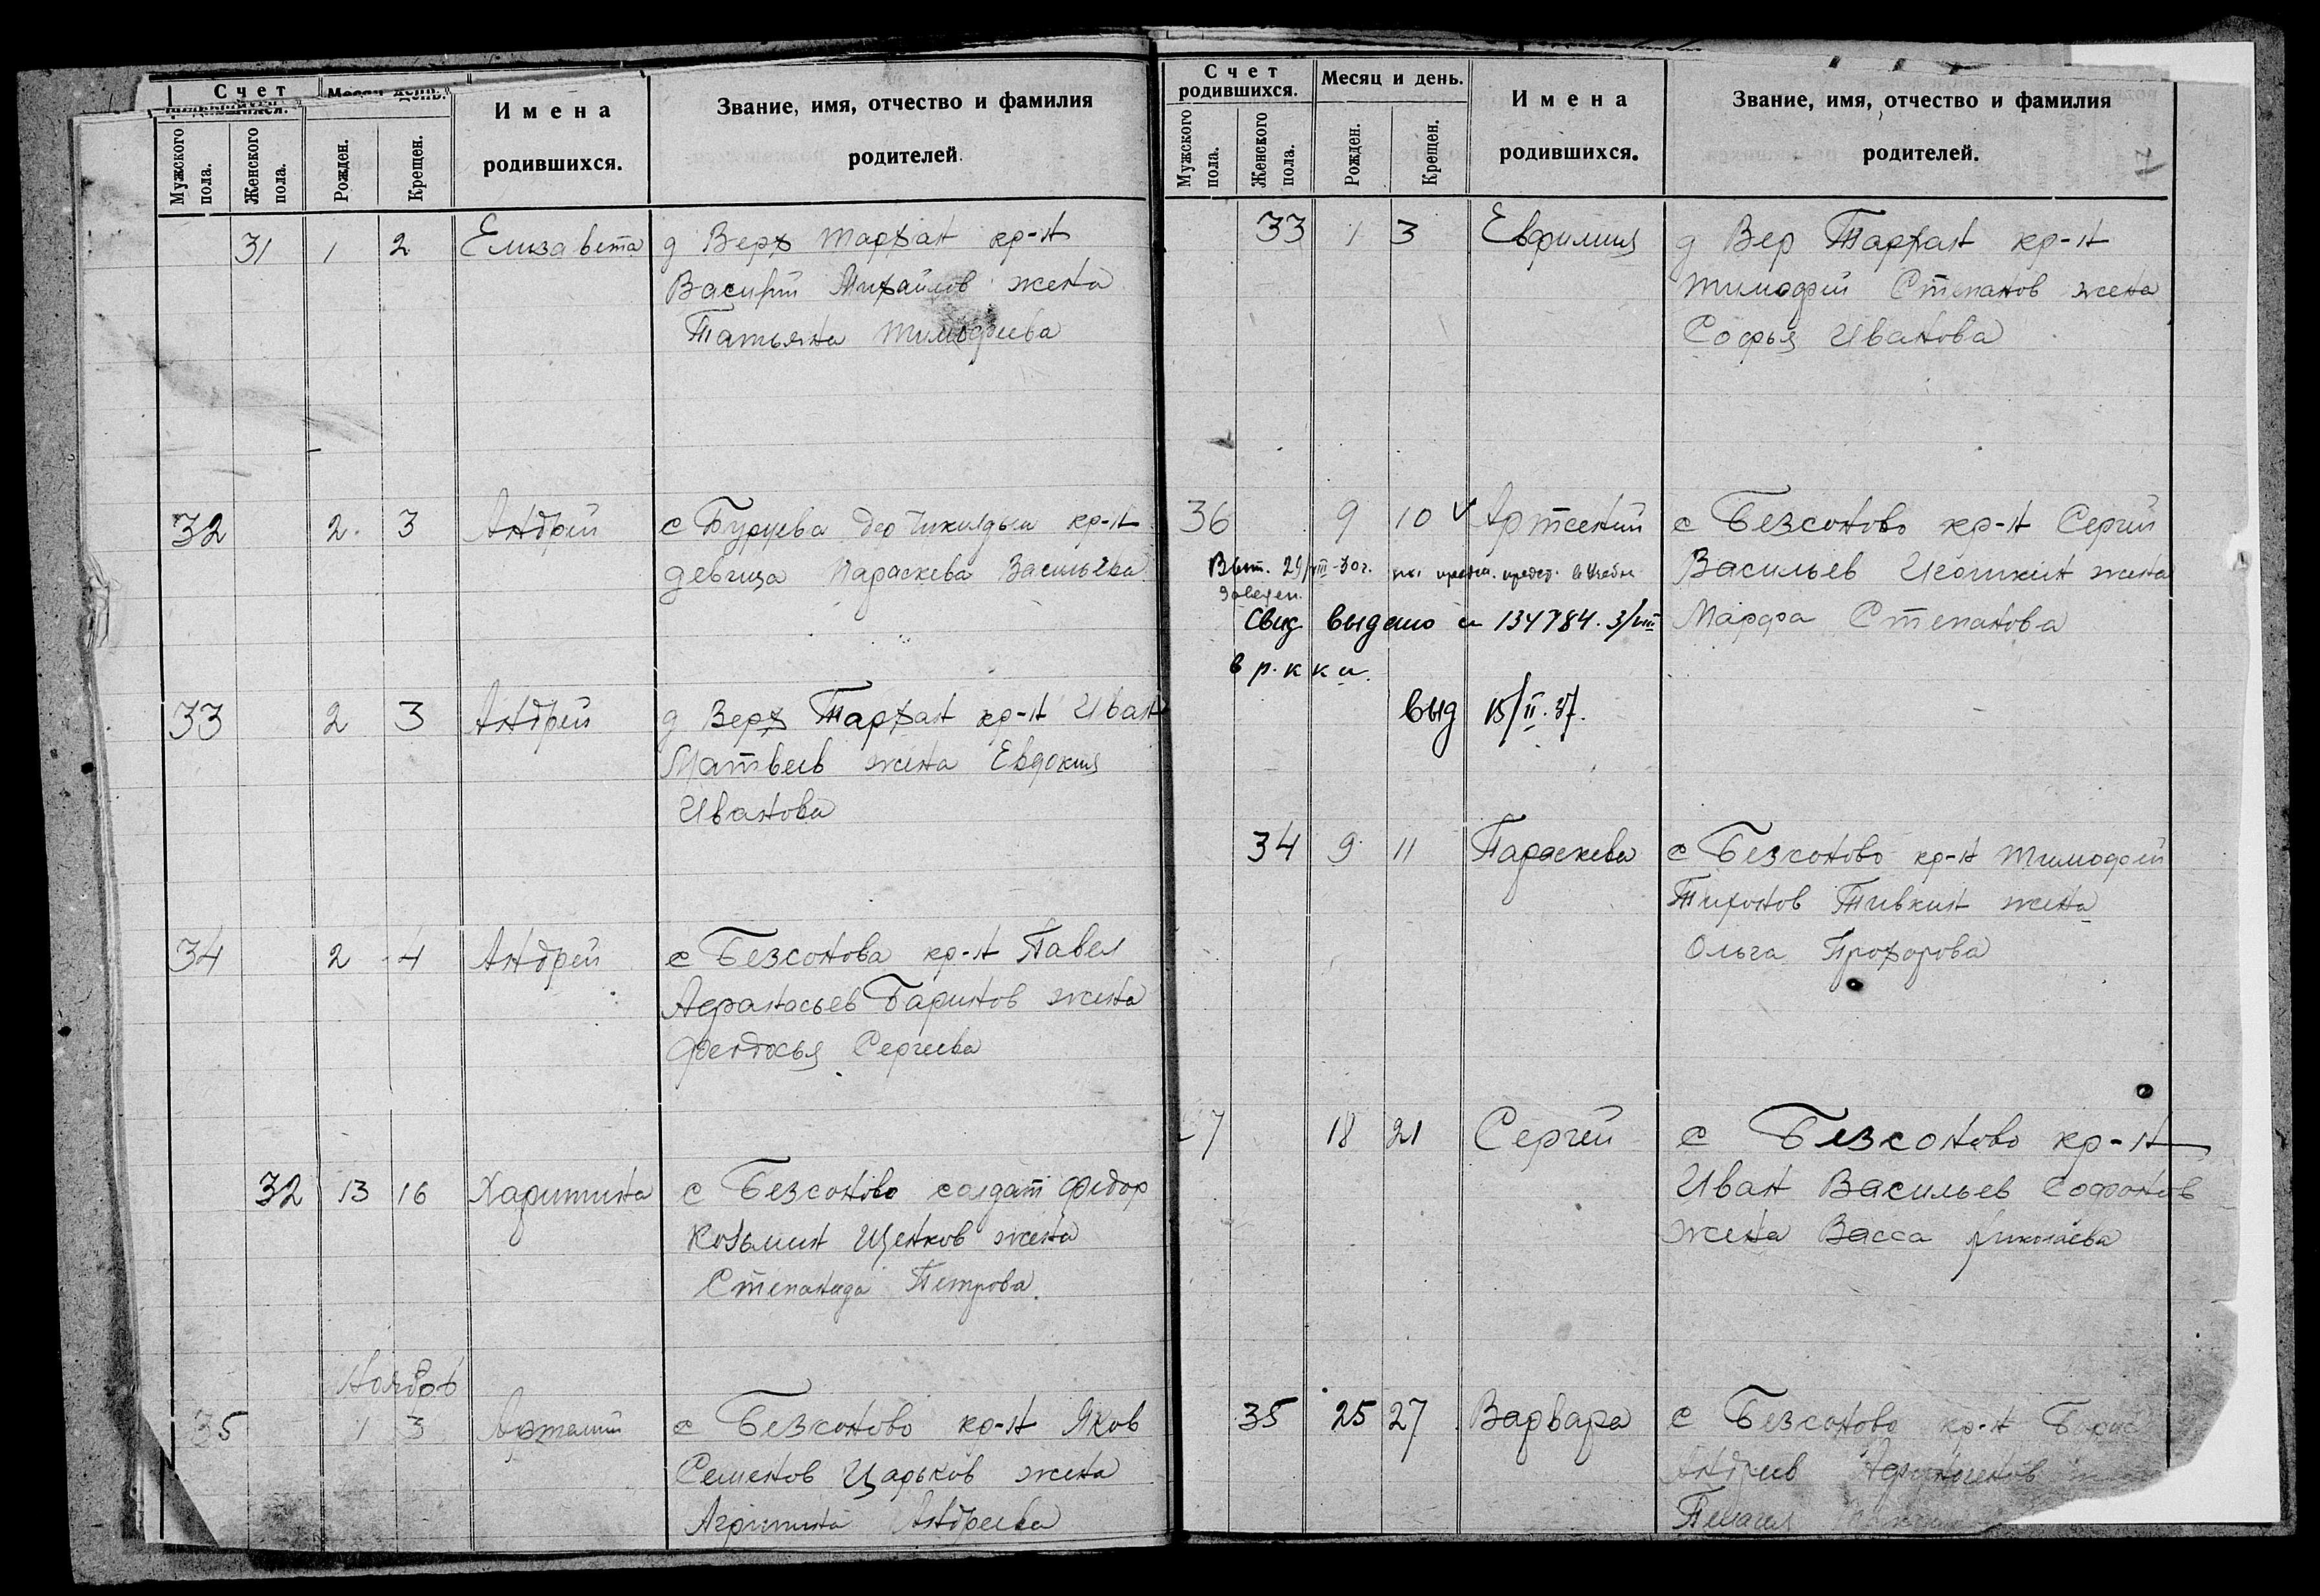 Счет
Месяц день.
Имена
родившихся.
Звание, имя, отчество и фамилия
родителей.
Мужского пола.
Женского пола.
Рожден.
Крещен.
31 1 2 Елизавета д Верх Тархан кр-н
Василий Михайлов жена
Татьяна Тимофеева
32 2 3 Андрей с Бурцева дер кр-н
девица Параскева Васильева
33 2 3 Андрей д Верх Тархан кр-н Иван
Матвеев жена Евдокия
Иванова
34 2 4 Андрей с Безсонова кр-н Павел
Афанасьев Баринов жена
Феодосья Сергеева
32 13 16 Харитина с Безсоново солдат Федор
Козьмин Щенков жена
Степанида Петрова.
Ноябрь
35 1 3 с Безсоново кр-н Яков
Семенов Царьков жена
Агрипина Андреева
Счет
родившихся.
Месяц и день.
Имена
родившихся.
Звание, имя, отчество и фамилия
родителей.
Мужского пола.
Женского пола.
Рожден.
Крещен.
33 1 3 Евфимия д Вер Тархан кр-н
Тимофей Степанов жена
Софья Иванова
36 9 10 Арсений с Безсоново кр-н Сергей
Васильев Игошкин жена
Марфа Степанова
Свид выдано 134784. 3/VIII
в р. к к а.
выд 15/II.37.
34 9 11 Параскева с Безсоново кр-н Тимофей
Тихонов Тивкин жена
Ольга Прохорова
7 18 21 Сергей с Безсоново кр-н
Иван Васильев Софонов
жена Васса Николаева
35 25 27 Варвара с Безсоново кр-н Борис
Андреев
Пелагея